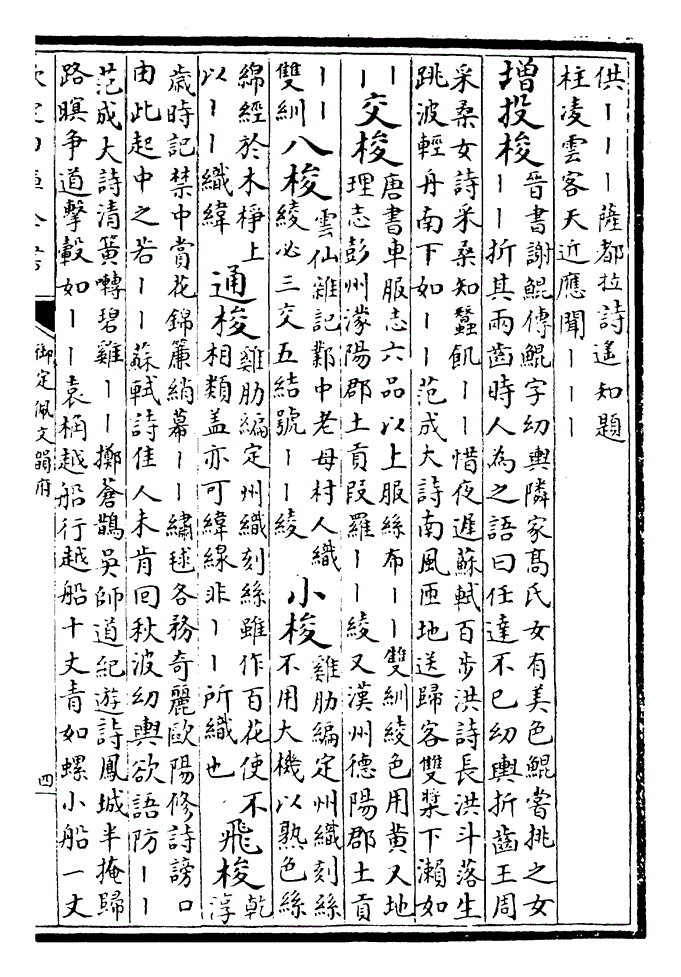 供｜｜｜薩都拉詩遥知題
柱凌雲客天近應聞｜｜｜
增投梭
晉書謝鯤傳鯤字幼輿隣家髙氏女有美色鯤嘗挑之女
｜｜折其兩齒時人為之語曰任達不已幼輿折齒王周
采桑女詩采桑知蠶飢｜｜惜夜遲蘇軾百步洪詩長洪斗落生
跳波輕舟南下如｜｜范成大詩南風匝地送歸客雙槳下瀨如
｜
｜
交梭
唐書車服志六品以上服絲布｜｜雙紃綾色用黄又地
理志彭州濛陽郡土貢段羅｜｜綾又漢州德陽郡土貢
｜｜
雙紃
八梭
雲仙雜記鄴中老母村人織
綾必三交五結號｜｜綾
小梭
雞肋編定州織刻絲
不用大機以熟色絲
綿經於木棦上
以｜｜織緯
通梭
雞肋編定州織刻絲雖作百花使不
相類盖亦可緯線非｜｜所織也
飛梭
乾
淳
歲時記禁中賞花錦簾綃幕｜｜繡毬各務奇麗歐陽修詩謗口
由此起中之若｜｜蘇軾詩佳人未肯回秋波幼輿欲語防｜｜
范成大詩清簧囀碧雞｜｜擲蒼鵲吳師道紀遊詩鳳城半掩歸
路瞑争道擊轂如｜｜袁桷越船行越船十丈青如螺小船一丈
御定佩文韻府
四